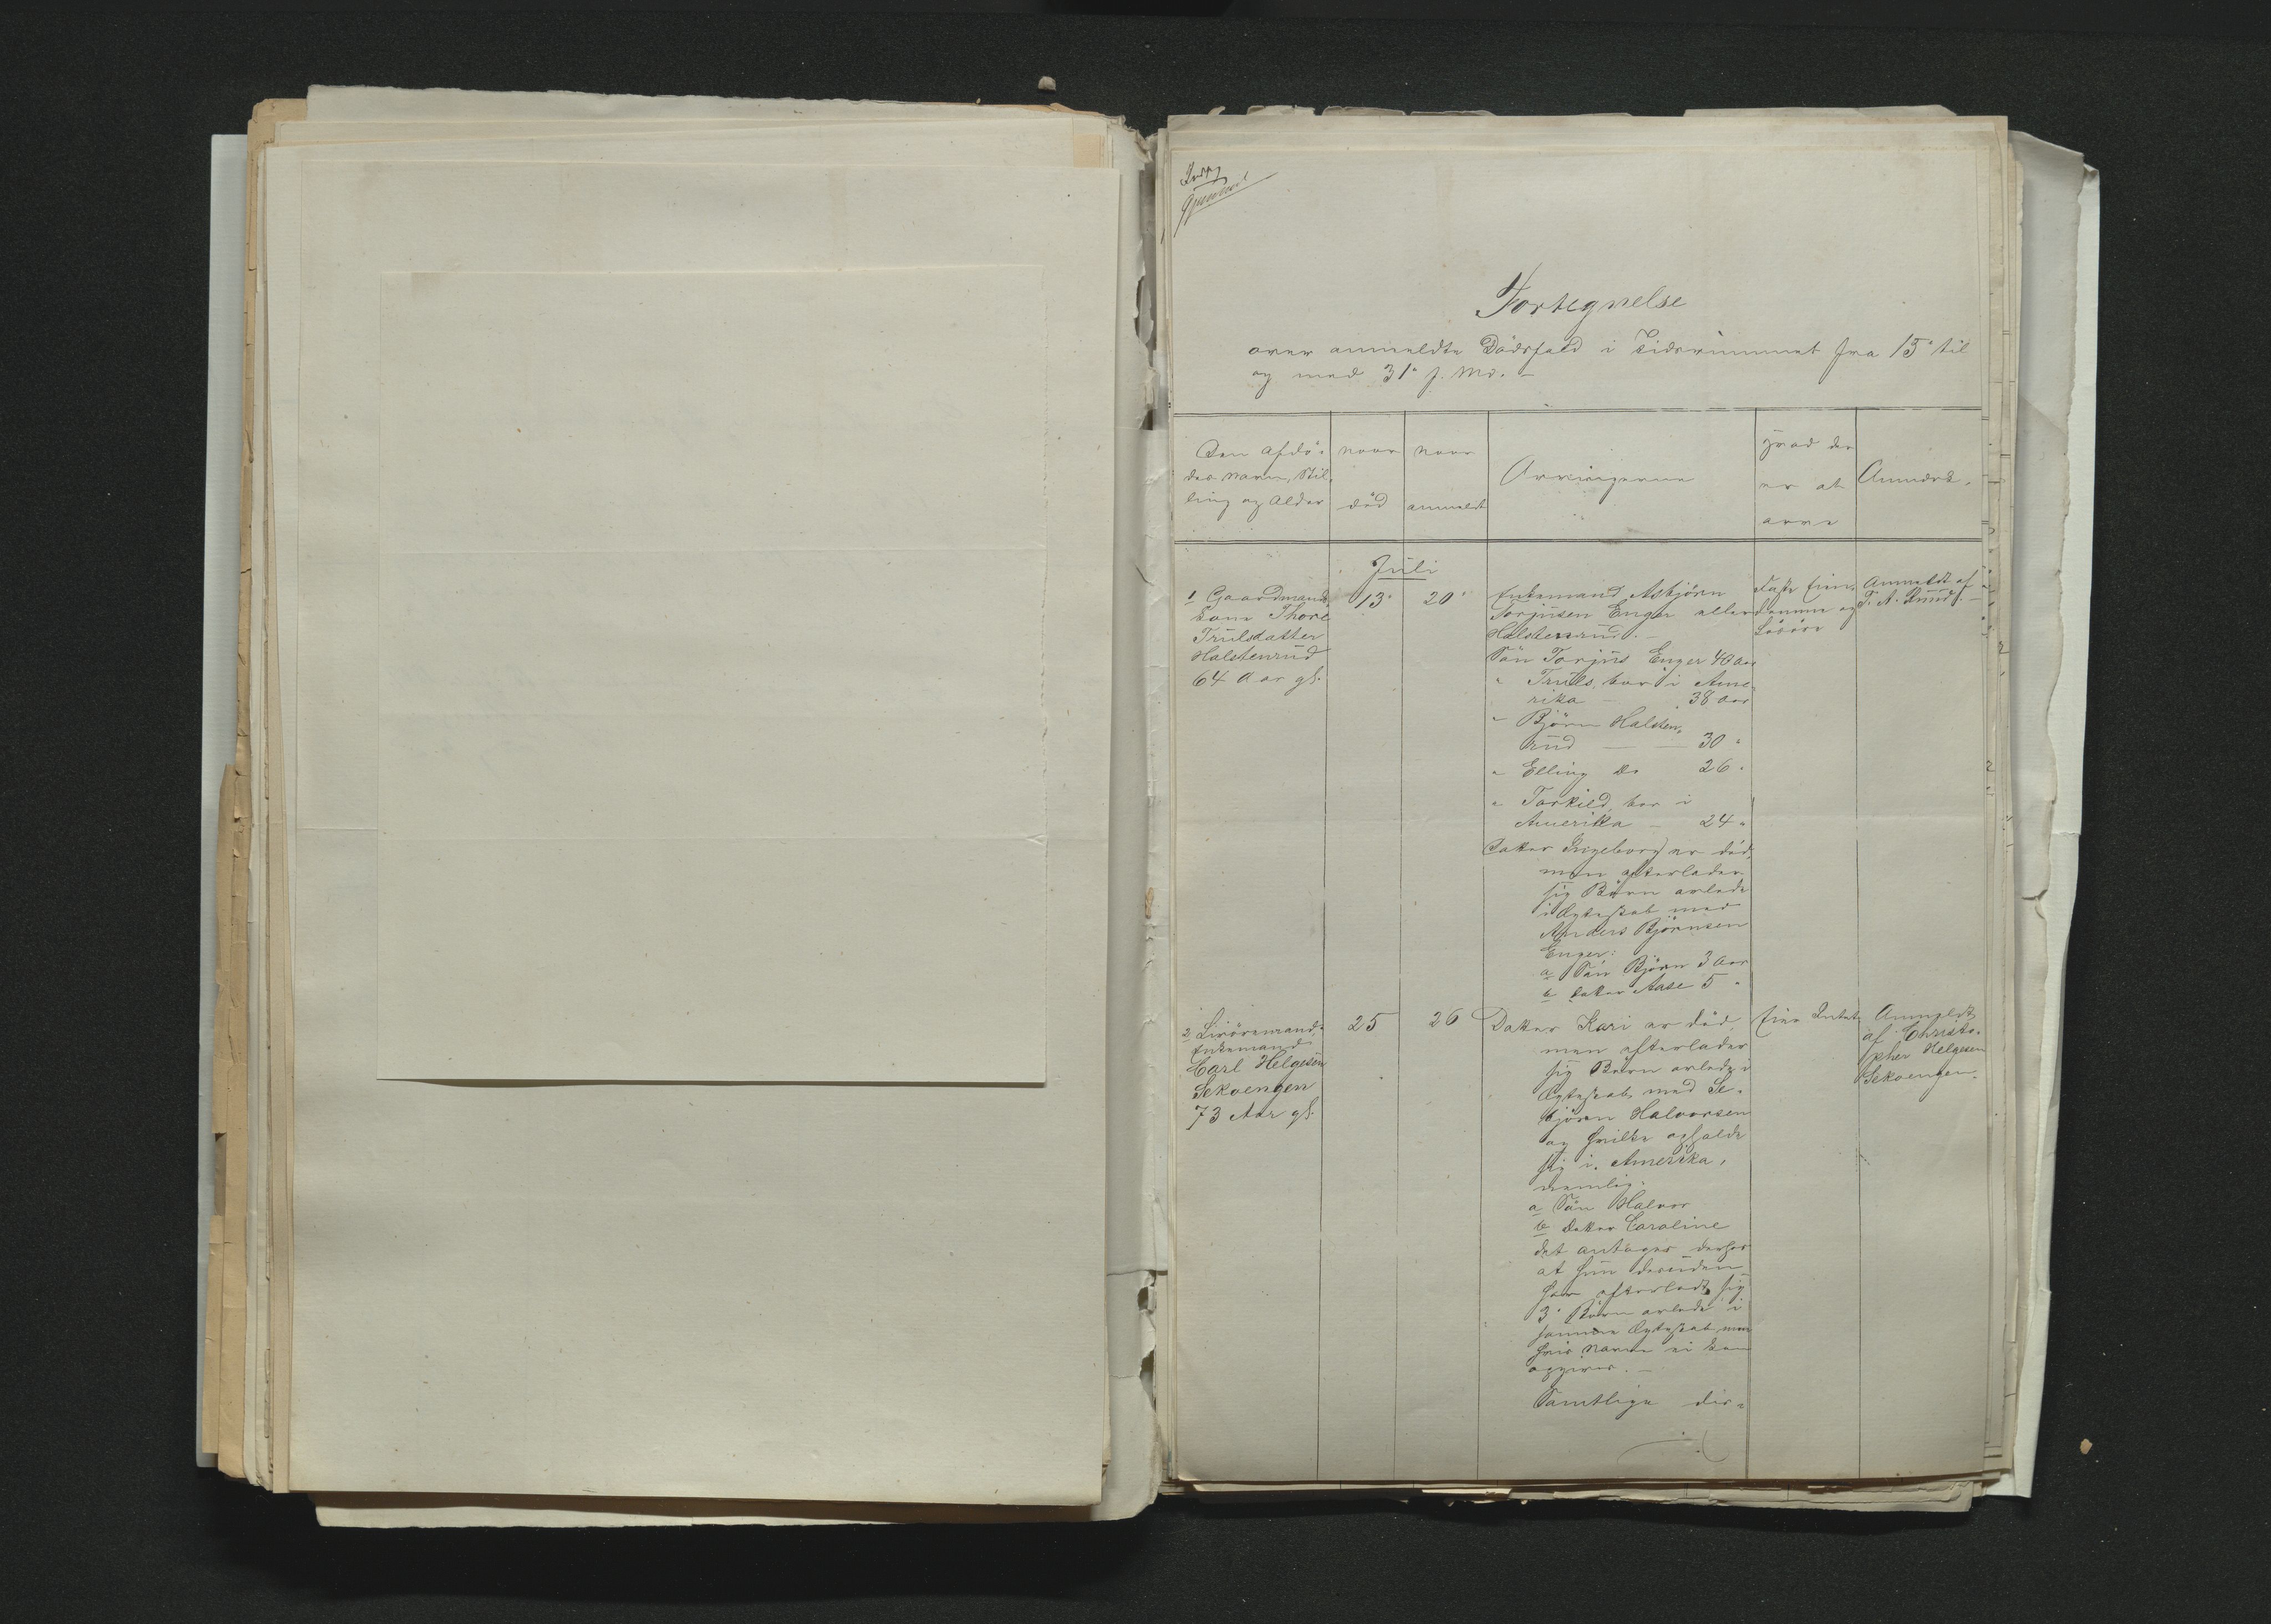 Fortegnelse
over anmeldte Dödsfald i Tidsrummet fra 15de til
og med 31te f. Md. –
Den afdö-
des Navn, Stil-
ling og Alder
naar
död
naar
anmeldt
Arvingerne
hvad der
er at
arve
Anmærk.
Juli
1 Gaardmands
kone Thore
Trulsdatter
Halstenrud
64 Aar gl.
13de
20de
Enkemand Asbjörn
Torjusen Enger eller
Halstenrud. –
Sön Torjus Enger 40 Aar
" Truls, bor i Ame-
rika – 38 Aar
" Björn Halsten-
rud — — 30 "
" Elling Do 26 "
" Torkild, bor i
Amerika – 24 "
Datter Ingeborg er död,
men efterlader
sig Börn avlede
i Ægteskab med
Anders Björnsen
Enger:
a Sön Björn 3 Aar
b Datter Aase 5 "
Fast Eien-
domme og
Lösöre
Anmeldt af
T. A. Ruud. –
2 Livöremand-
Enkemand
Carl Helgesen
Sekvengen
73 Aar gl.
25
26
Datter Kari er död,
men efterlader
sig Börn avlede i
Ægteskab med Se-
björn Halvorsen
og hvilke opholde
sig i Amerika,
nemlig:
a Sön Halvor
b Datter Caroline
det antages derhos
at hun desuden
har efterladt sig
3de Börn avlede i
samme Ægteskab, men
hvis Navne ei kan
opgives. –
Samtlige dis-
Intet
Anmeldt
af Christo-
pher Helgesen
Sekvengen.